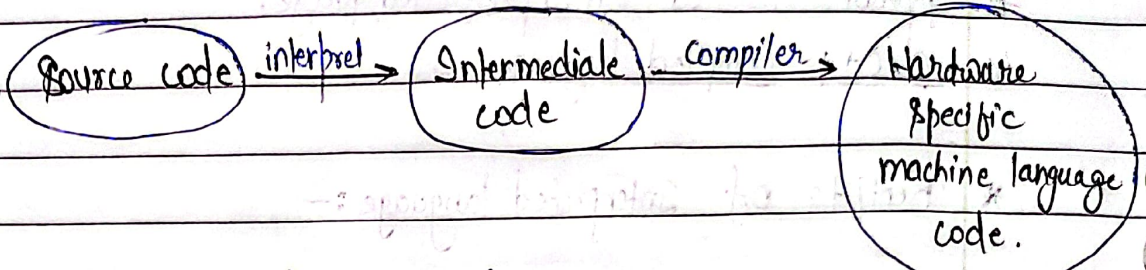 Source code
interpret
Intermediate
code
compiler
Hardware
specific
machine language
code.